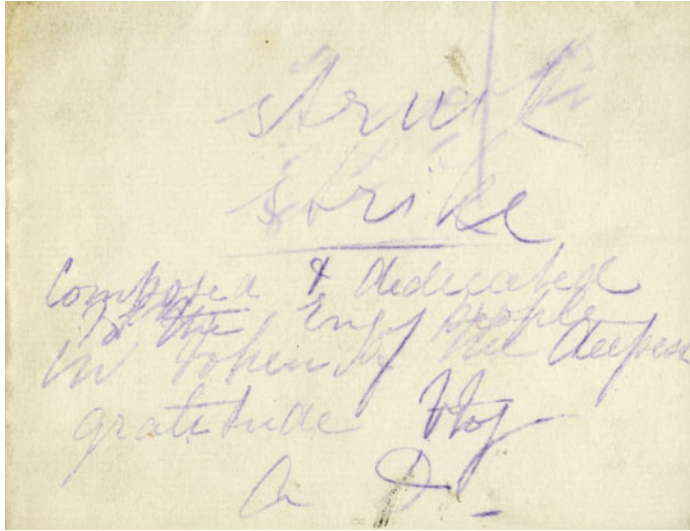 struck
strike
composed & dedicated
to the Eng people
in token of the deepest
gratitude by
A D